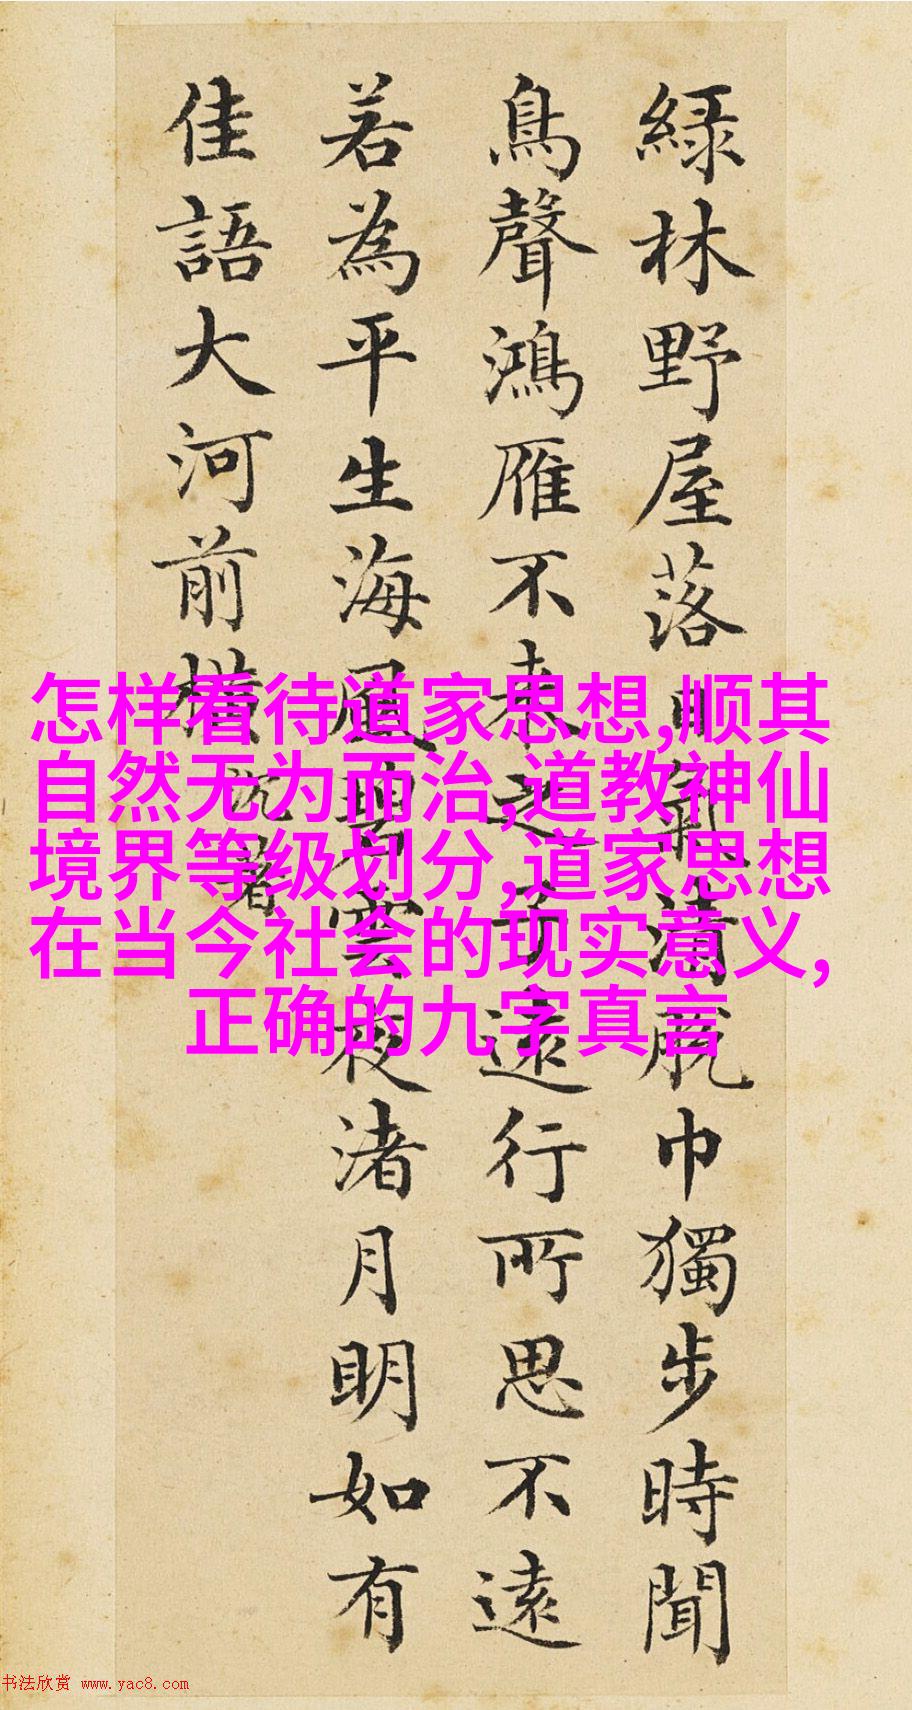 綠林野屋落日氣清脫巾獨步時聞
鳥聲鴻雁不來之子遠行所思不遠
若為平生海風碧雲夜渚月明如有
佳語大河前橫
怎样看待道家思想,顺其
自然无为而治,道教神仙
境界等级划分,道家思想
在当今社会的现实意义,
正确的九字真言
书法欣赏 www.yac8.com